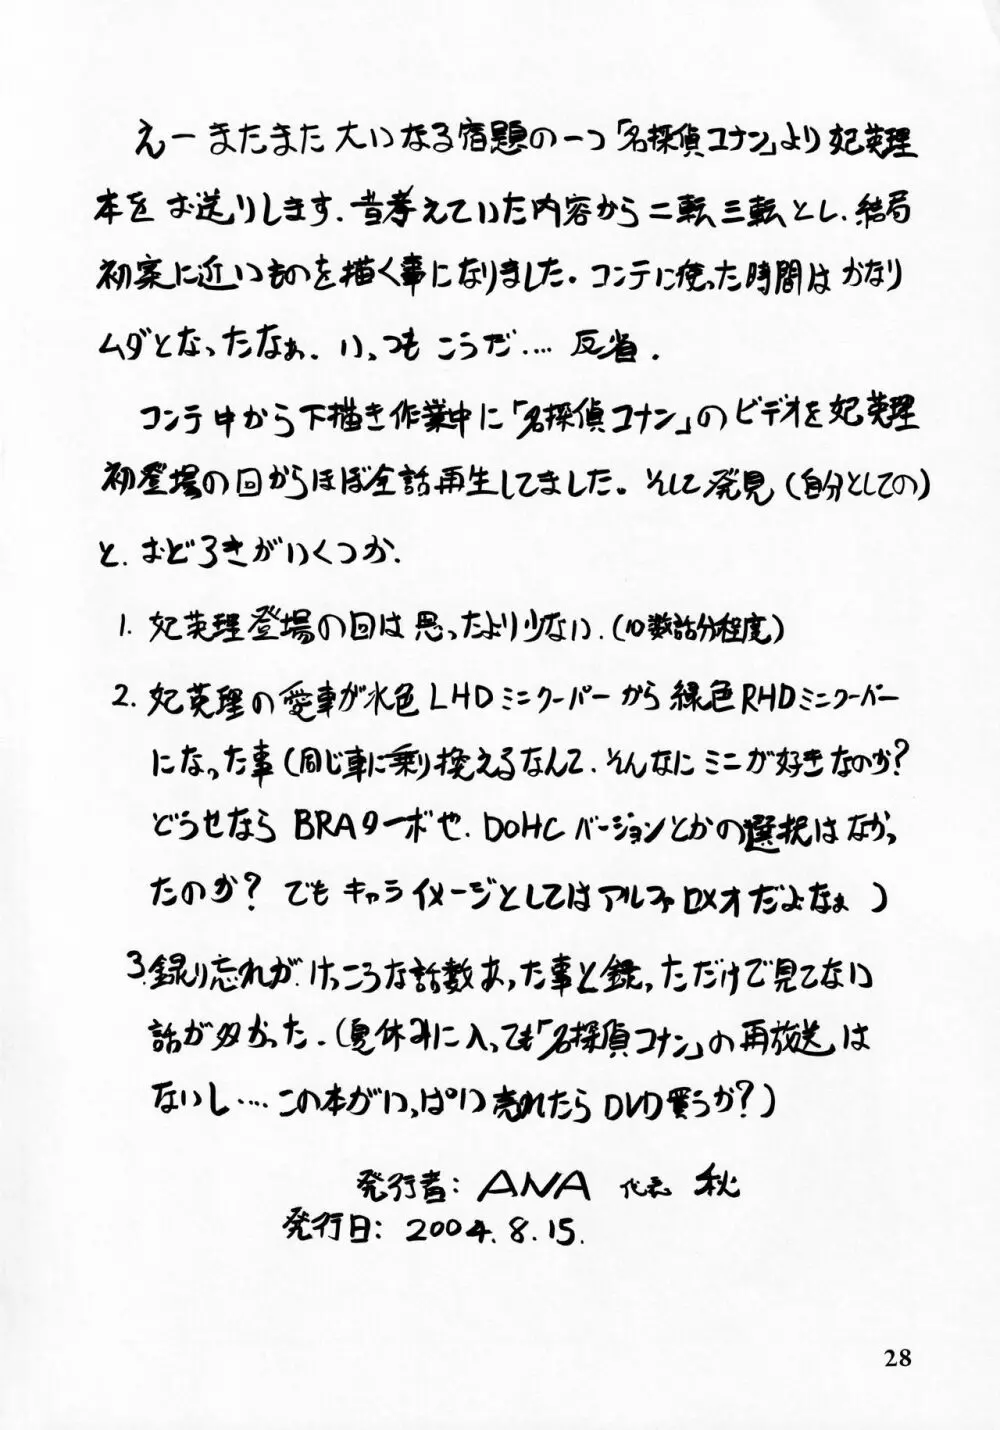 えーまたまた大いなる宿題の一つ「名探偵コナン」より妃英理
本をお送りします．昔考えていた内容から二転三転とし．結局
初案に近いものを描く事になりました。コンテに使った時間はかなり
ムダとなったなぁ．いっつもこうだ‥‥反省．
コンテ中から下描き作業中に「名探偵コナン」のビデオを妃英理
初登場の回からほぼ全話再生してました。そして発見(自分としての)
と．おどろきがいくつか．
1. 妃英理登場の回は思ったより少ない．(10数話分程度)
2. 妃英理の愛車が水色LHDミニクーパーから緑色RHDミニクーパー
になった事(同じ車に乗り換えるなんて．そんなにミニが好きなのか？
どうせなら BRAターボや．DOHCバージョンとかの選択はなかっ
たのか？ でもキャライメージとしてはアルファロメオだよなぁ)
3. 録り忘れが．けっこうな話数あった事と録っただけで見てない
話が多かった．(夏休みに入っても「名探偵コナン」の再放送は
ないし‥‥この本がいっぱい売れたらDVD買うか？)
発行者: ANA 代表 秋
発行日: 2004.8.15.
28